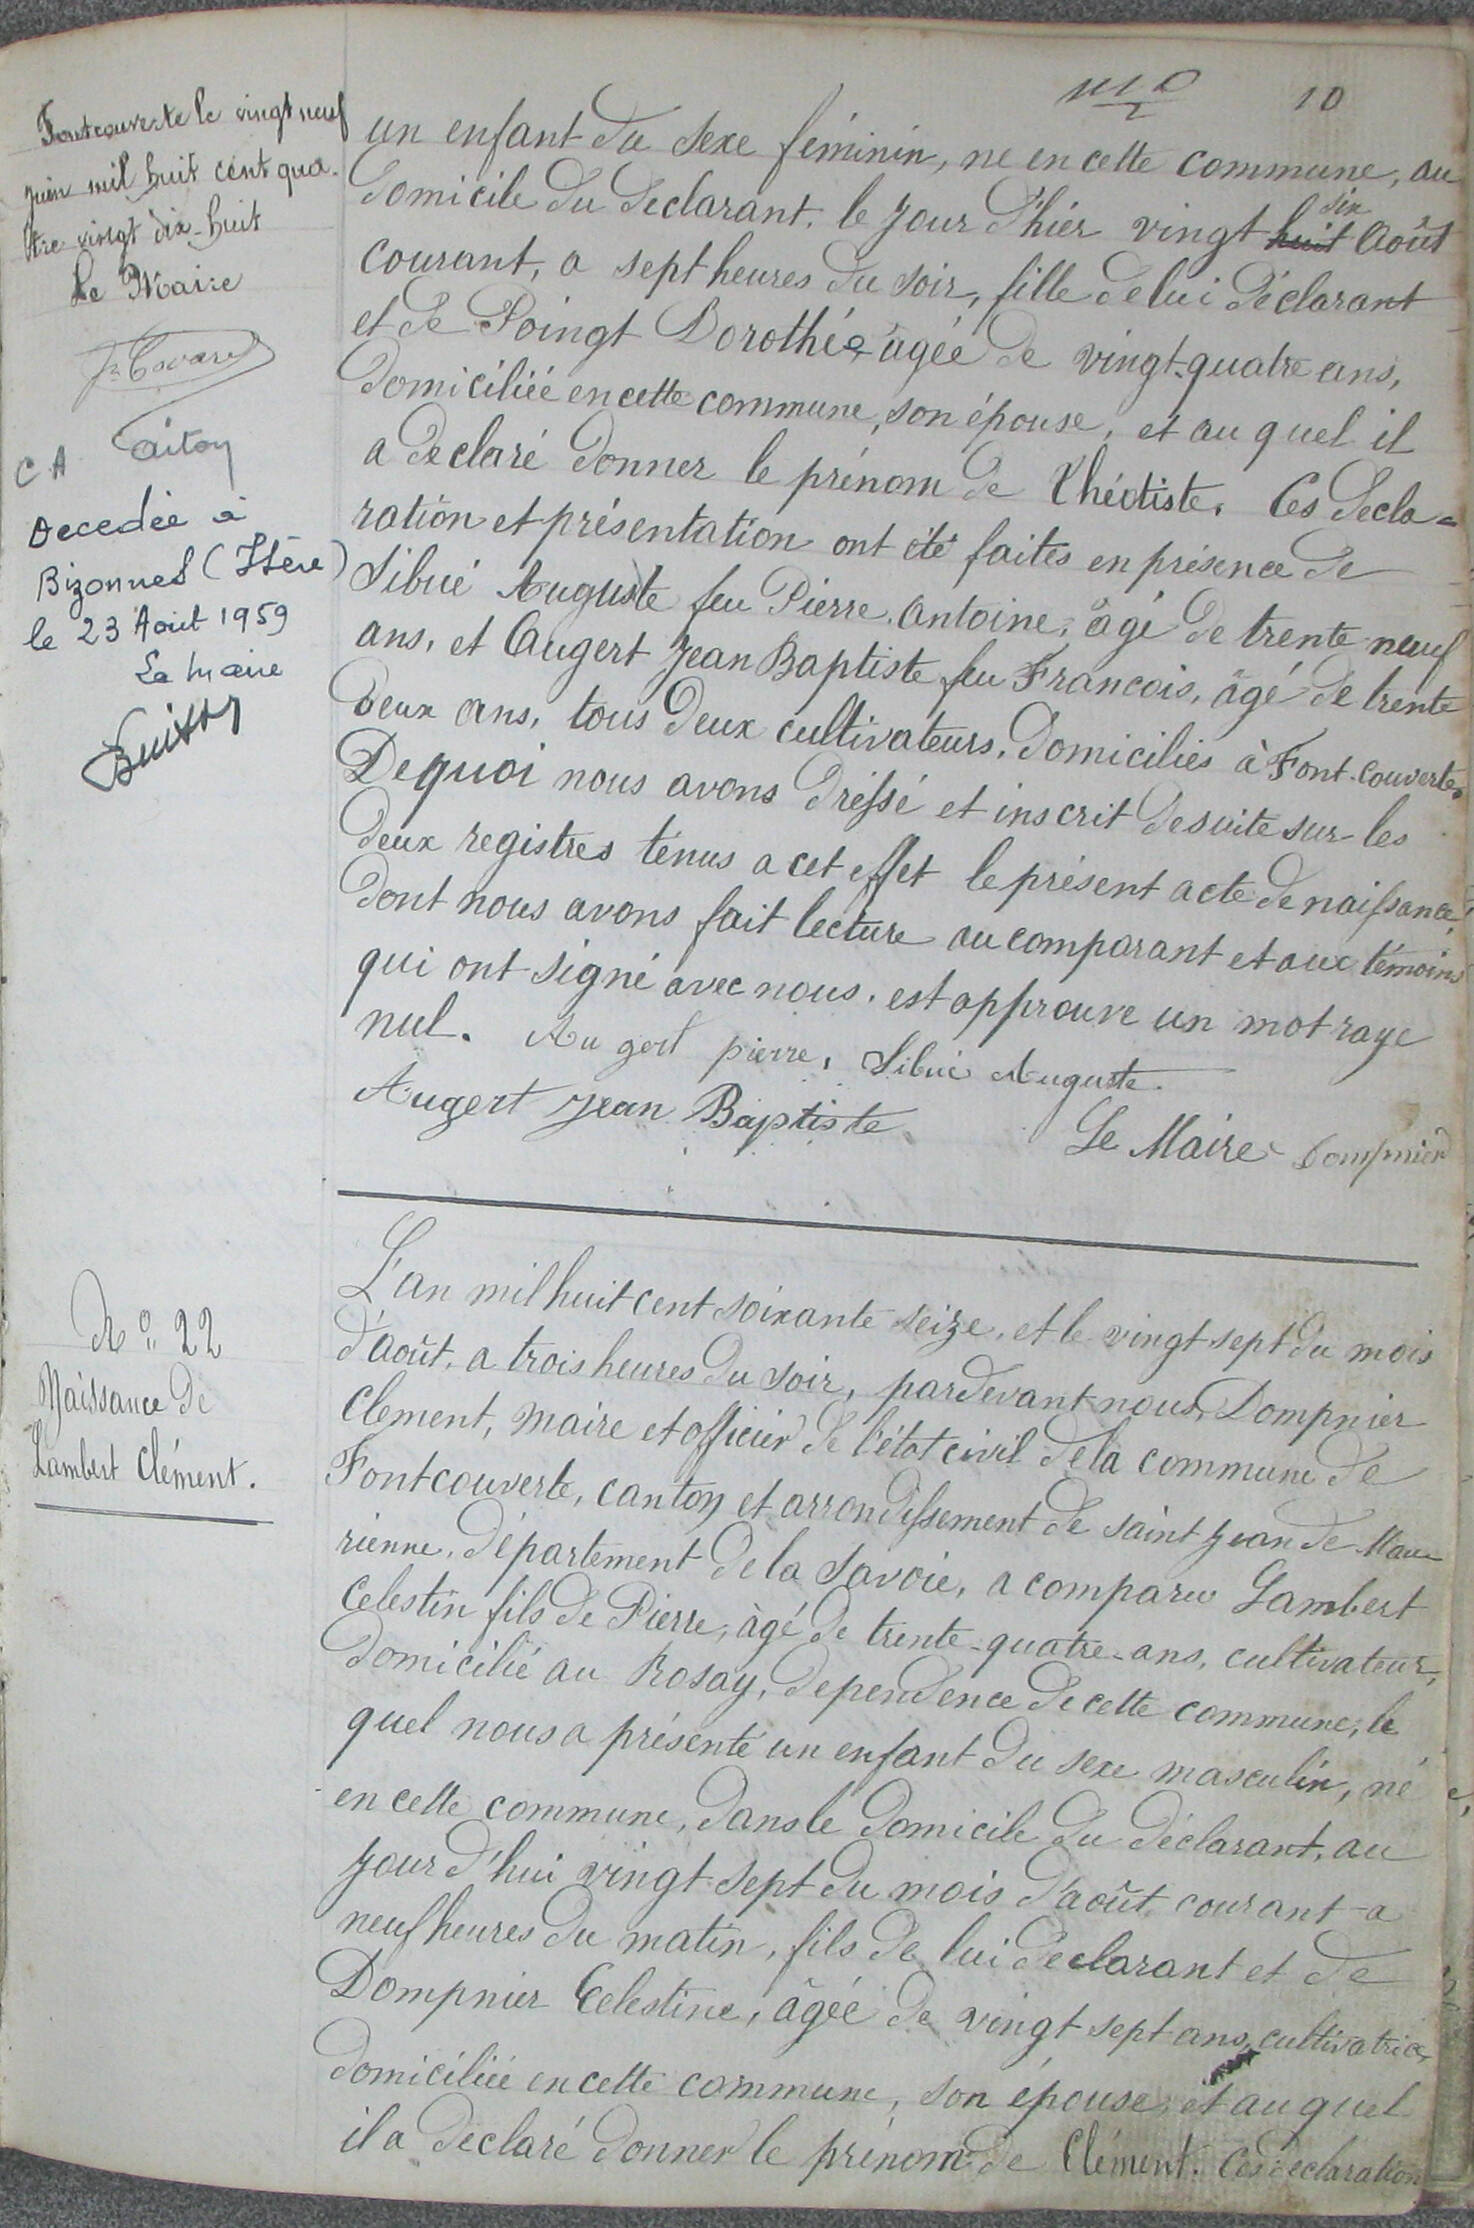 10
Fontcouverte le vingt neuf
juin mil huit cent qua-
tre vingt dix-huit
Le Maire
CA
Decedée à
Bizonnes (Isère)
le 23 Août 1959
Le Maire
un enfant du sexe féminin, ne en cette commune, au
domicile du declarant, le jour d'hier vingt huit six Août
courant, a sept heures du soir, fille de lui déclarant
et de Poingt Dorothée agée de vingt-quatre ans,
domiciliée en cette commune, son épouse, et au quel il
a declaré donner le prénom de Théotiste. Ces decla=
ration et présentation ont été faites en présence de
Sibué Auguste feu Pierre Antoine, âgé de trente neuf
ans, et Augert Jean Baptiste feu Francois, âgé de trente
deux ans, tous deux cultivateurs, domiciliés à Font-couverte.
De quoi nous avons dressé et inscrit desuite sur les
deux registres tenus a cet effet le présent acte de naissance,
dont nous avons fait lecture au comparant et aux témoins
qui ont signé avec nous. est approuve un mot raye
nul. Au gert pierre, Sibué Auguste.
Augert Jean Baptiste
Le Maire Dompnier
N° 22
Naissance de
Lambert Clément.
L'an mil huit cent soixante seize, et le vingt sept du mois
d'août, a trois heures du soir, pardevant nous, Dompnier
Clement, Maire et officier de l'état civil de la commune de
Fontcouverte, canton et arrondissement de saint Jean de Mau
rienne, département de la Savoie, a comparu Lambert
Celestin fils de Pierre, âgé de trente-quatre-ans, cultivateur,
domicilié au Rosay, dependence de cette commune, le
quel nous a présenté un enfant du sexe masculin, né
en cette commune, dans le domicile du déclarant, au
jour d'hui vingt-sept du mois d'août courant a
neuf heures du matin, fils de lui declarant et de
Dompnier Celestine, âgée de vingt sept ans, cultivatrice,
domiciliée en cette commune, son épouse, et au quel
il a declaré donner le prénom de Clément. Ces declaration